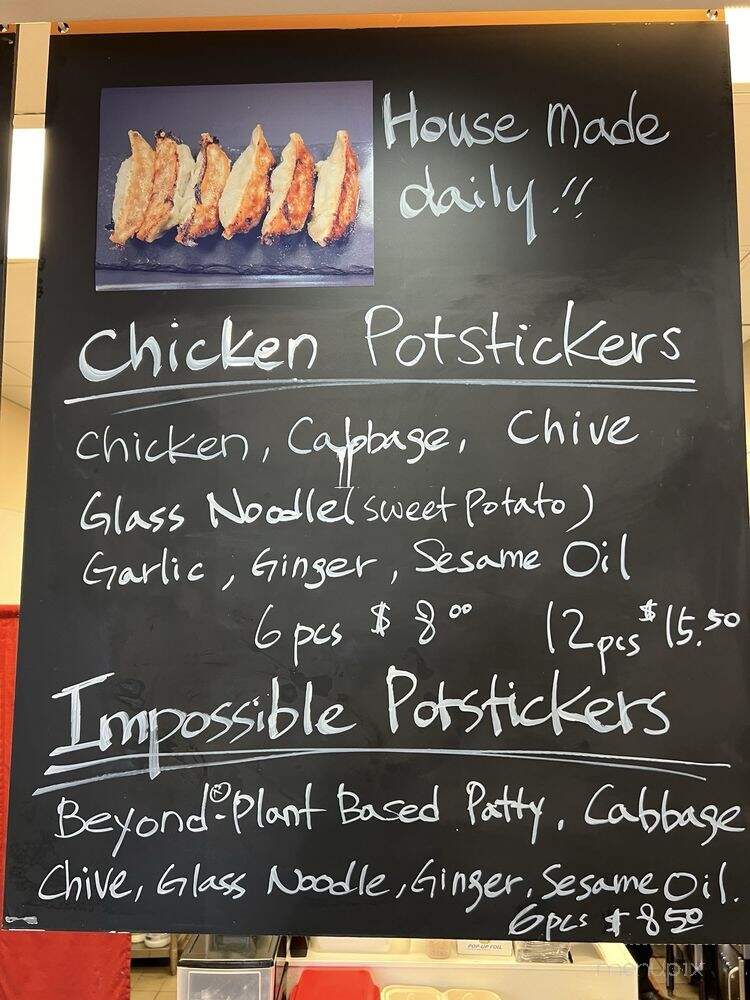 House Made
daily!!
Chicken Potstickers
Chicken, Cabbage, Chive
Glass Noodle (sweet potato)
Garlic, Ginger, Sesame Oil
6pcs $8.00 12pcs $15.50
Impossible Potstickers
Beyond®-Plant Based Patty, Cabbage
Chive, Glass Noodle, Ginger, Sesame Oil.
6pcs $8.50
POP-UP FOIL
menupix